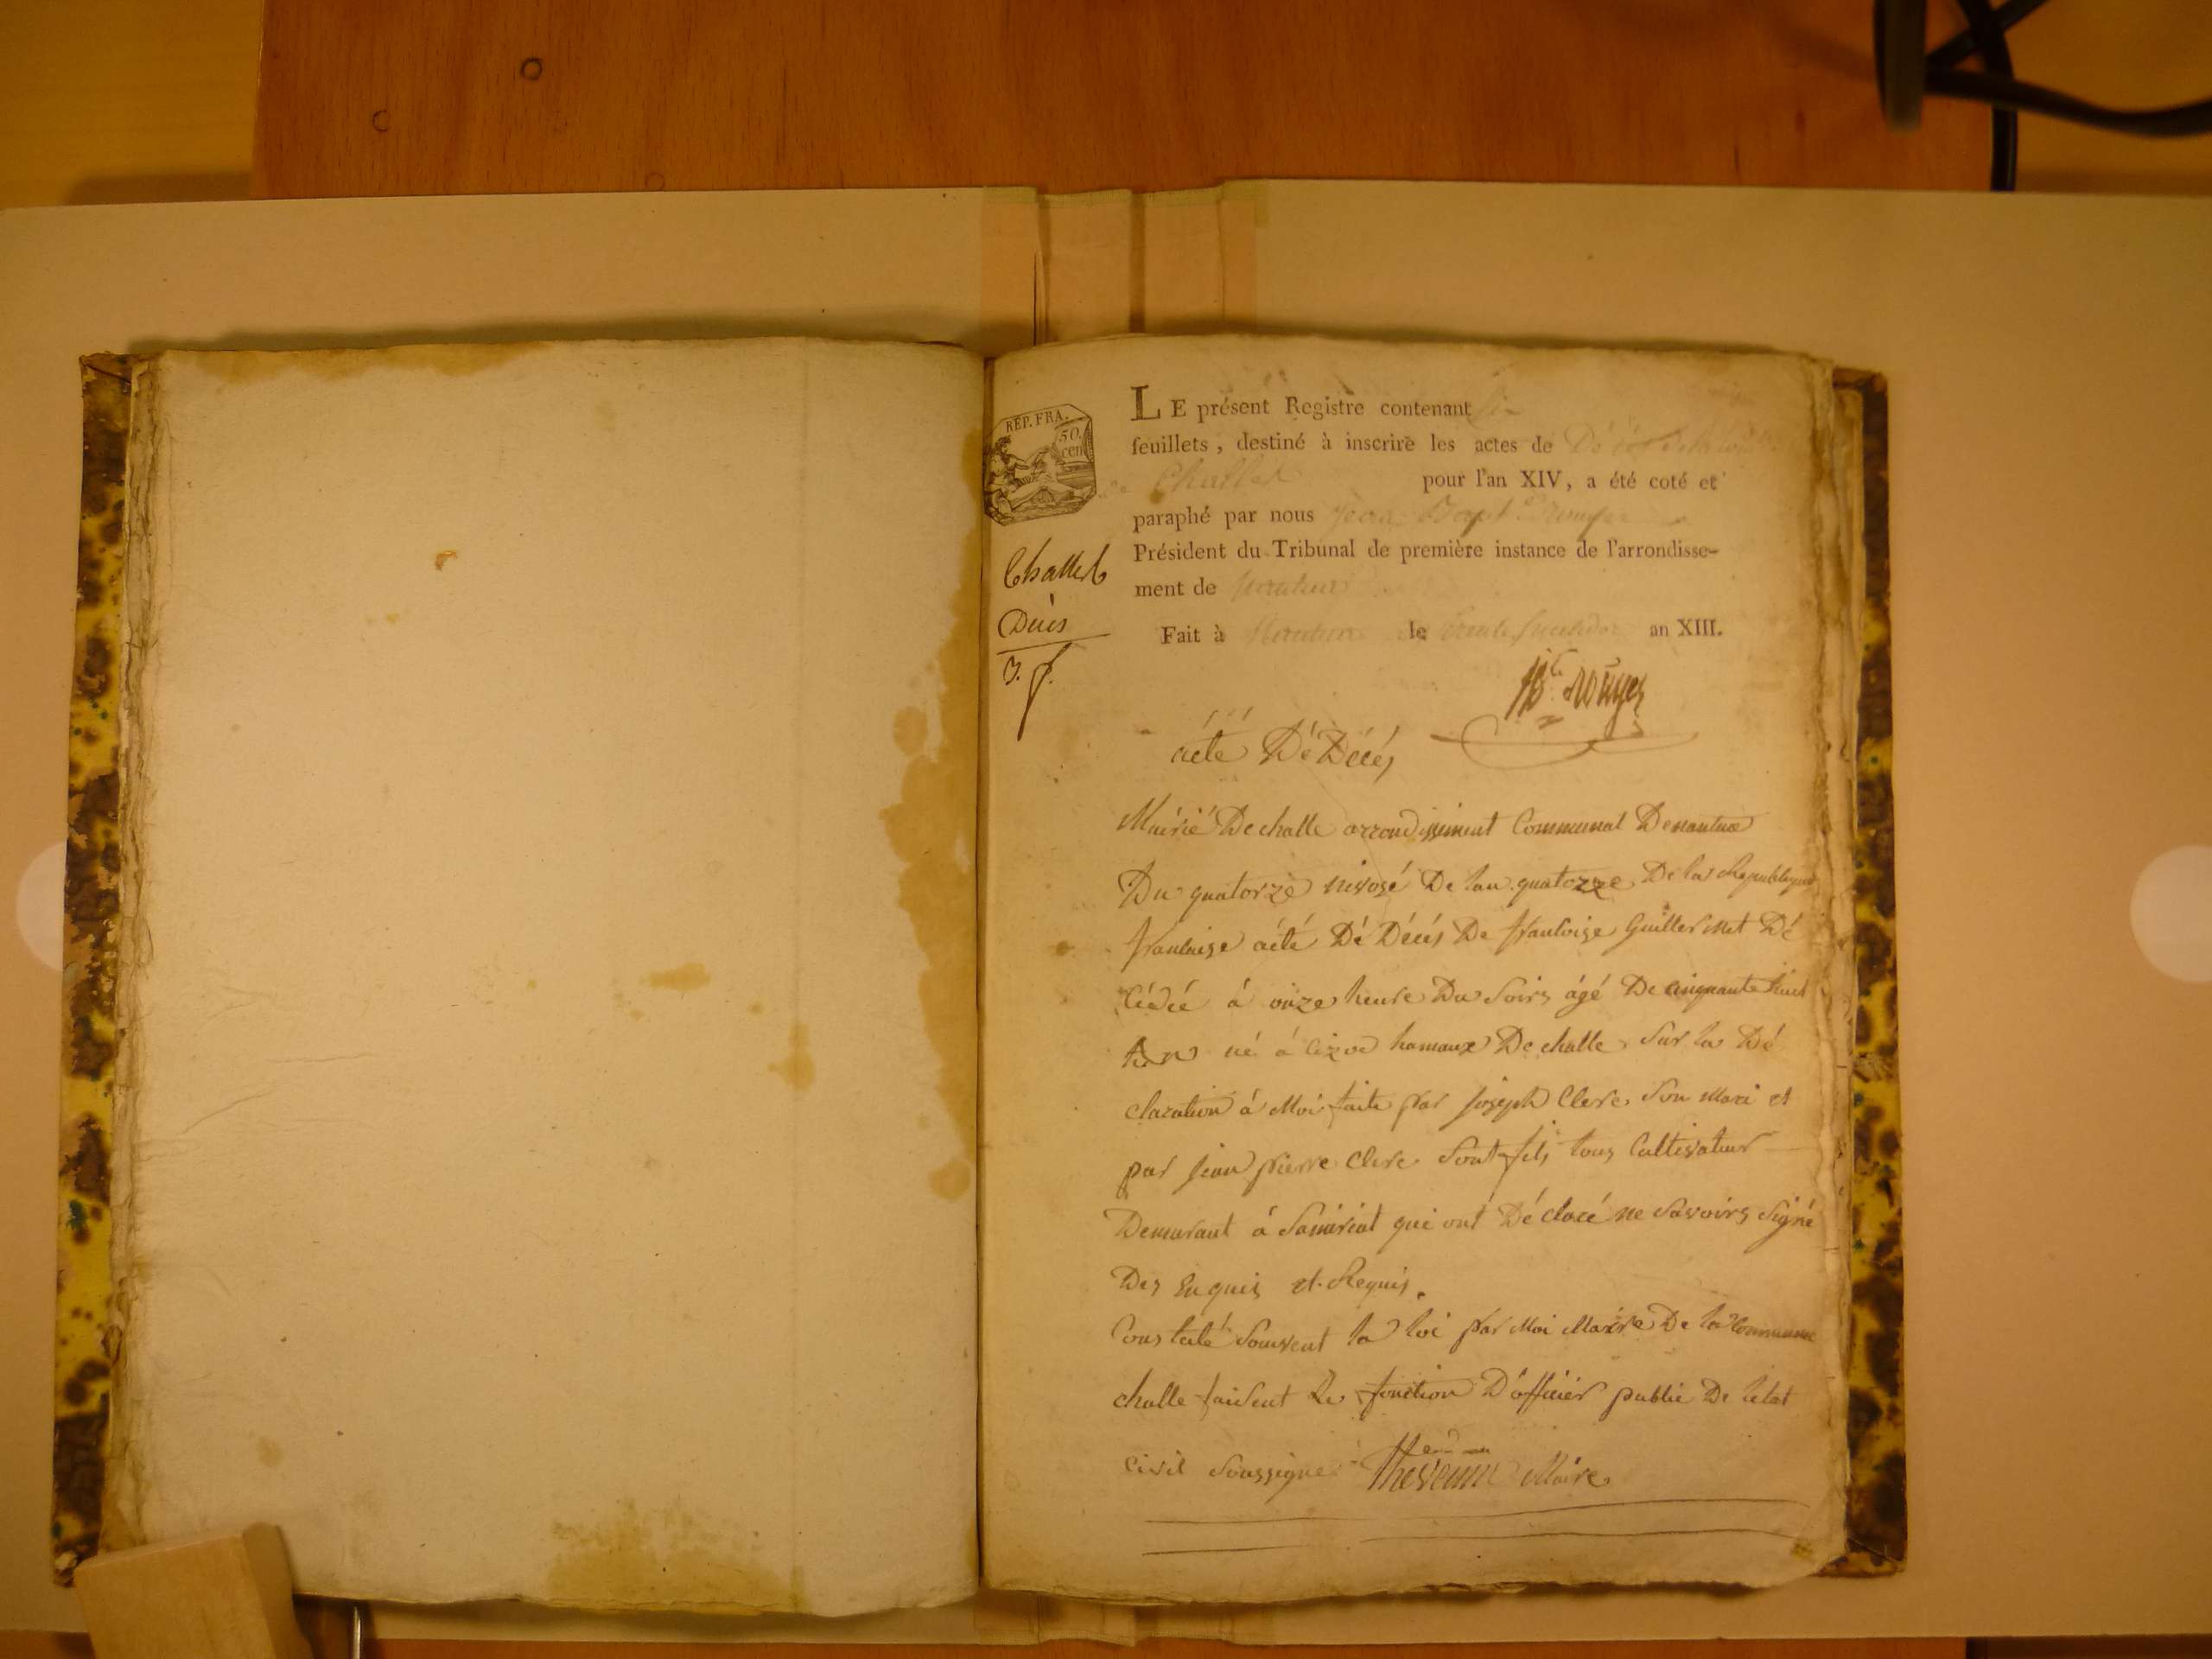 RÉP. FRA.
50
cen
LE présent Registre contenant
feuillets, destiné à inscrire les actes de Décès
Challes pour l'an XIV, a été coté et
paraphé par nous Jean Bapt
Président du Tribunal de première instance de l'arrondisse-
ment de Nantua
Fait à Nantua le trente fructidor an XIII.
Challes
Décés
3. f.
acte Dé Décés
Mairié De challe arrondissiment Communal De nantua
Du quatorzé nivosé De lan quatorze De la Republique
francaise acté Dé Décés De francoise Guillermet Dé
cédée á onze heure Du soirs ágé De cinquante huit
An né á hamaux De challe Sur la Dé
claration á Moi faite par joseph Clerc Son mari et
par jean pierre Clerc Sont fils tous Cultivateur
Demurant á qui ont Déclaré ne Savoirs Signé
Des Enquis et Requis.
Constaté Souvent la loi par Moi Maire De la Commune
challe faisent Le fonction D'officier public De letat
Civil Soussigné Maire